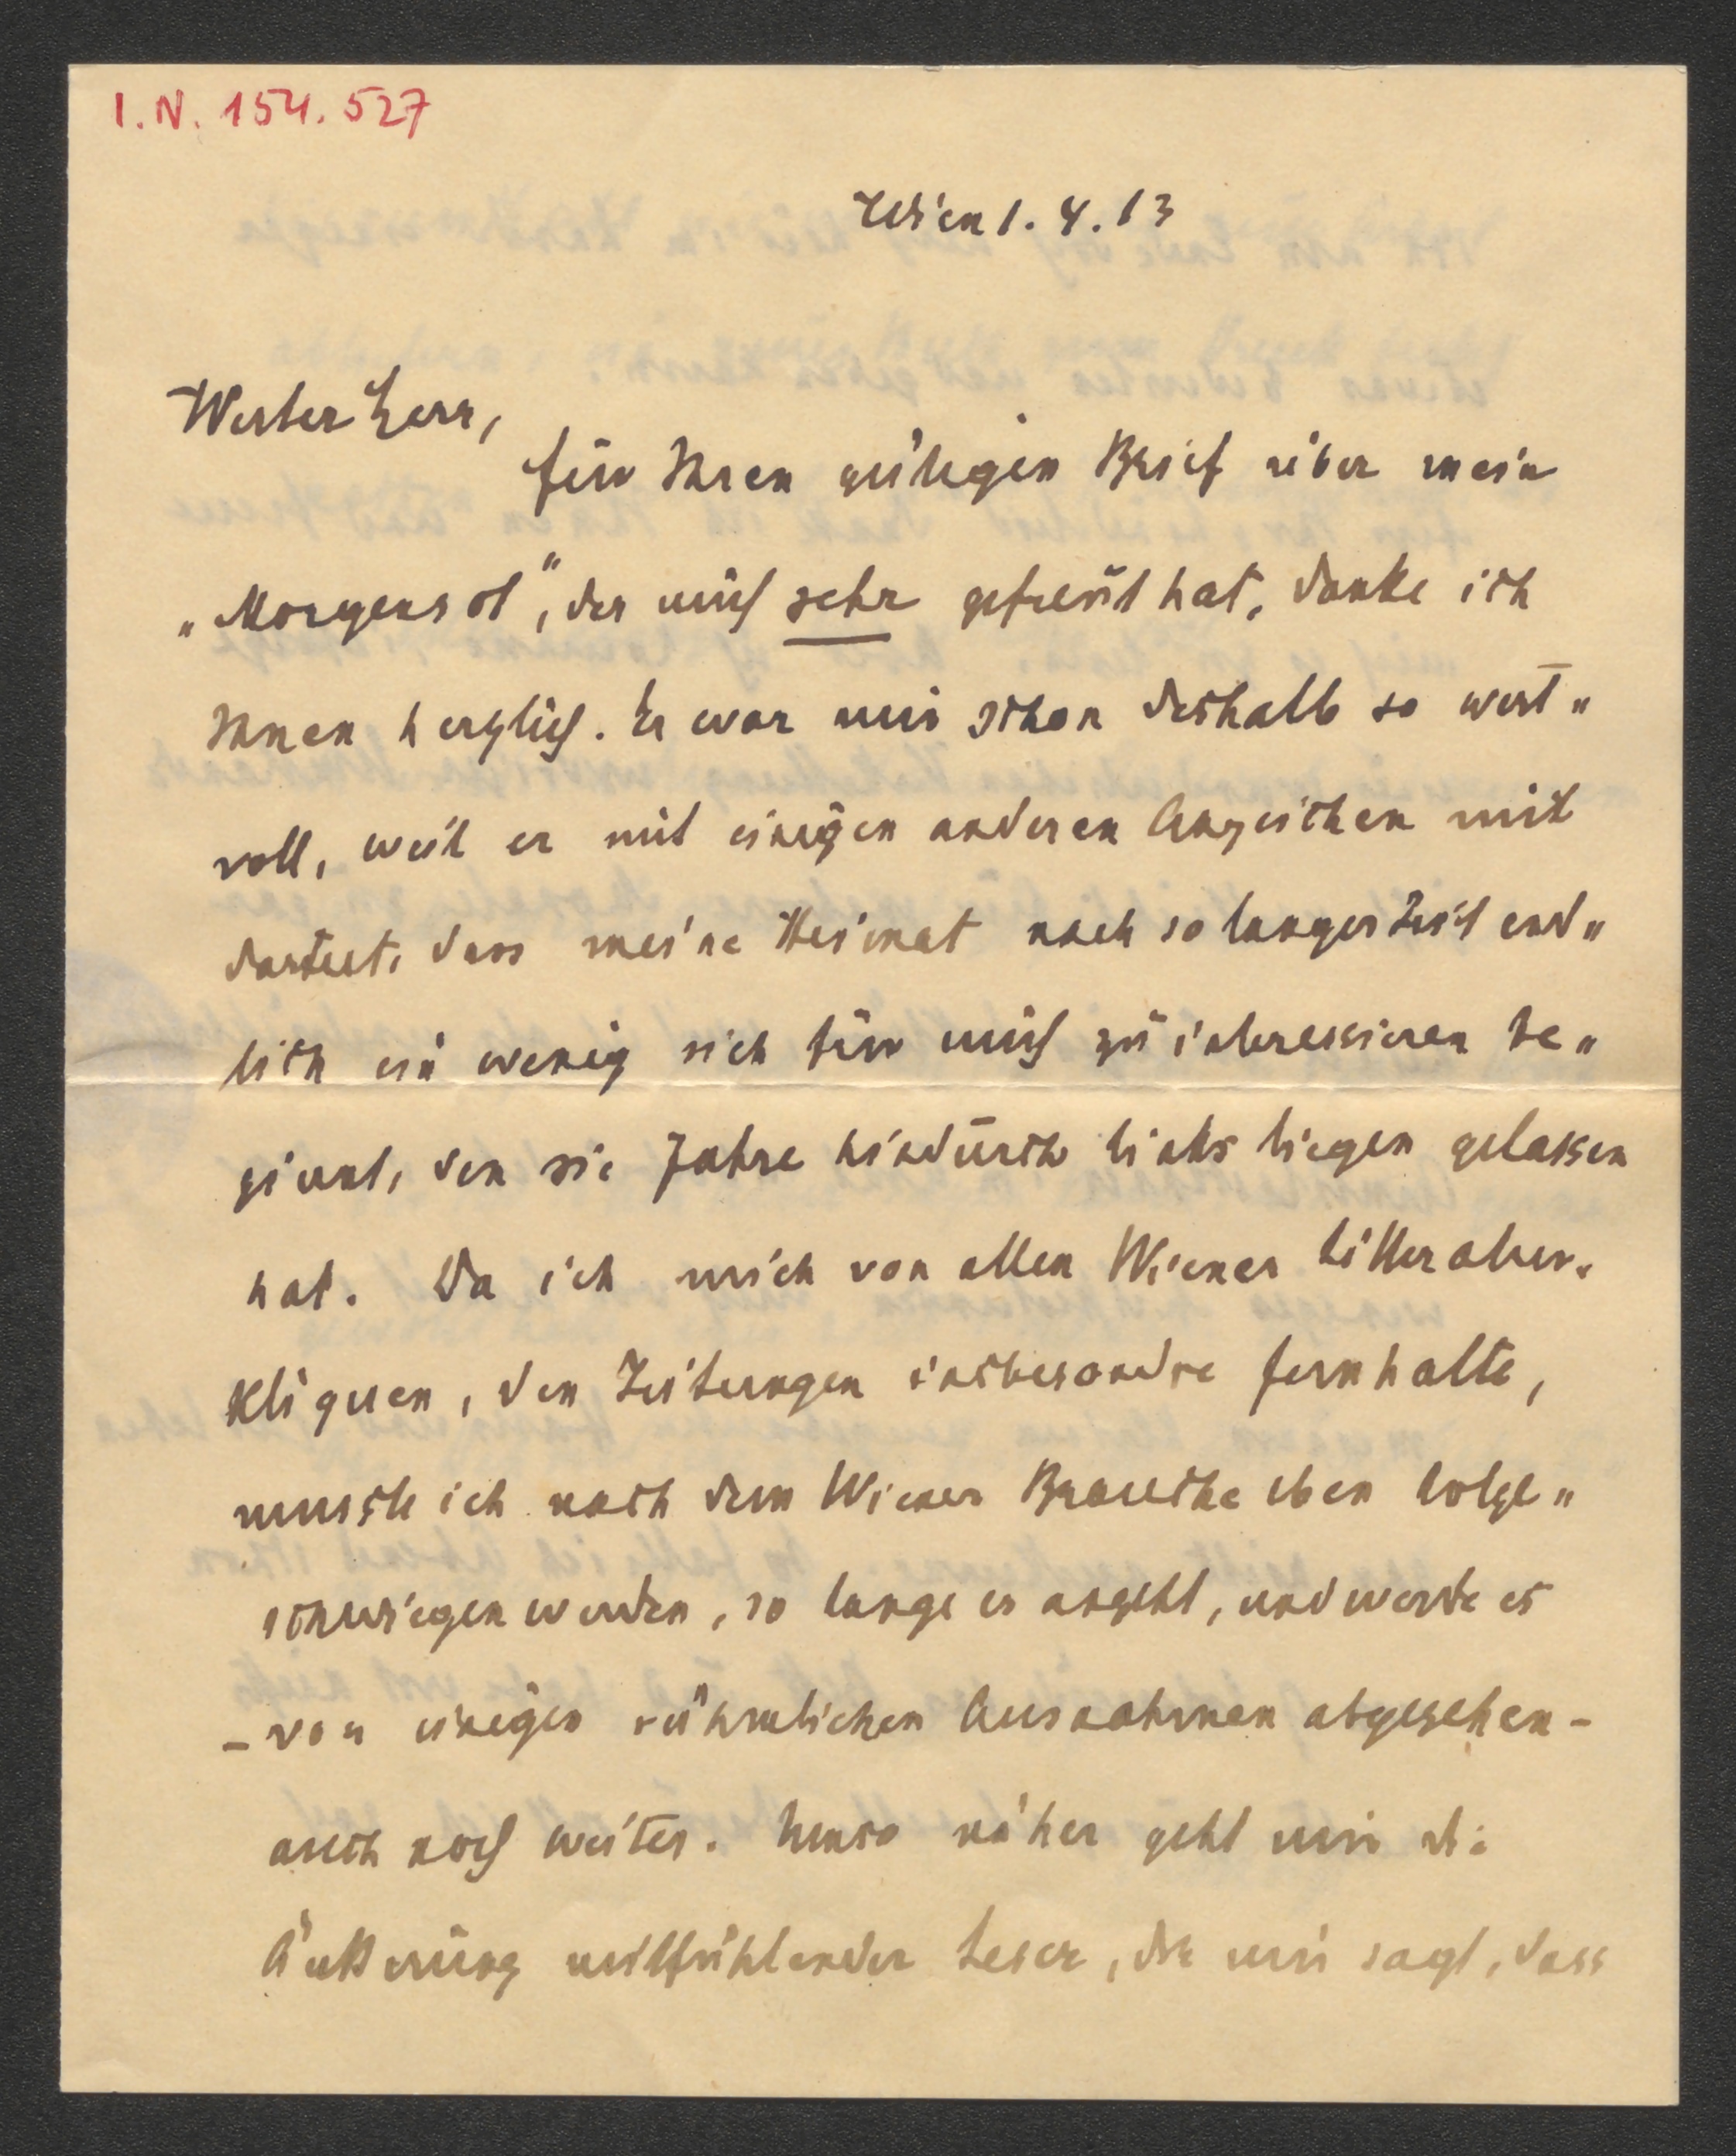 I.N. 154.527
Wien 1.4.13
Werter Herr,
für Ihren gütigen Brief über mein
„Morgenrot", der mich sehr gefreut hat, danke ich
Ihnen herzlich. Er war mir schon deshalb so wert„
voll, weil er mit einigen anderen Anzeichen mit
dartut, dass meine Heimat nach so langer Zeit end„
lich ein wenig sich für mich zu interessieren be„
ginnt, den sie Jahre hindurch links liegen gelassen
hat. Da ich mich von allen Wiener Litteratur-
kliquen, den Zeitungen insbesondre fernhalte,
musste ich nach dem Wiener Brauche eben totge„
schwiegen werden, so lange es angeht, und werde es
– von einigen rühmlichen Ausnahmen abgesehen –
auch noch weiter. Umso näher geht mir die
Äußerung mitfühlender Leser, die mir sagt, dass